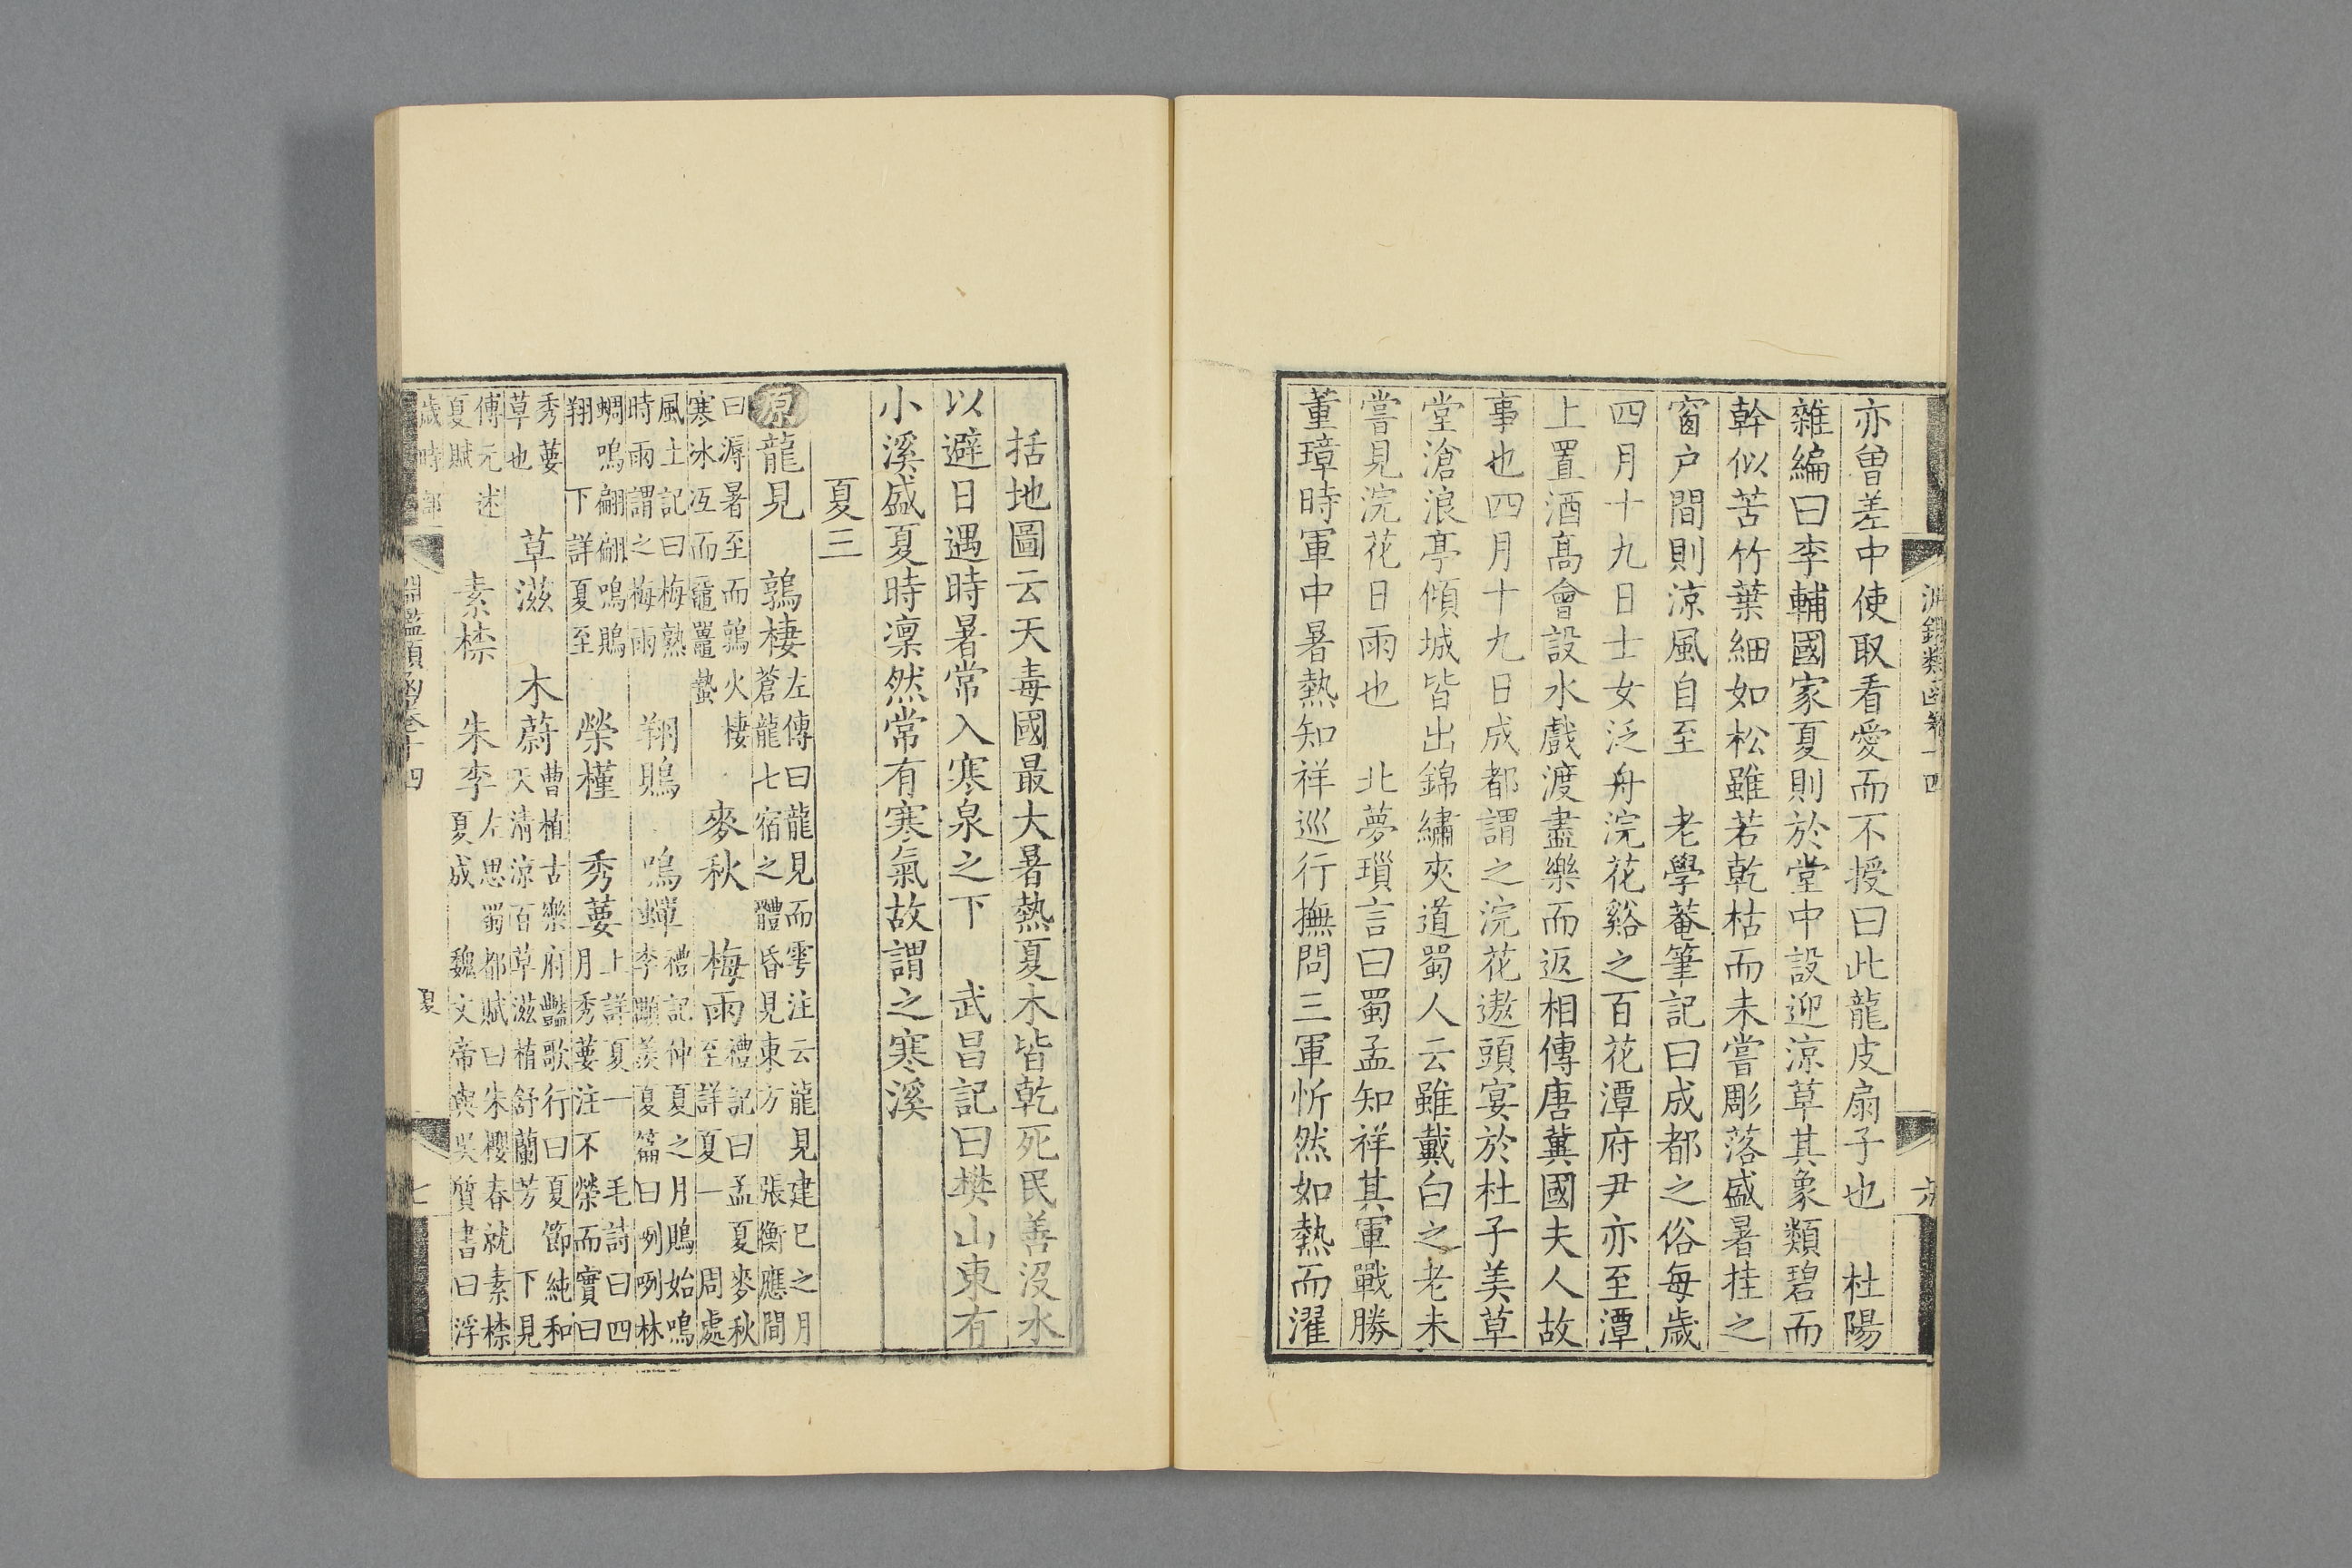 淵鑑類函卷十四
六
亦曾差中使取看愛而不授曰此龍皮扇子也　杜陽
雜編曰李輔國家夏則於堂中設迎涼草其象類碧而
幹似苦竹葉細如松雖若乾枯而未嘗彫落盛暑挂之
窗户間則涼風自至　老學菴筆記曰成都之俗每歲
四月十九日士女泛舟浣花谿之百花潭府尹亦至潭
上置酒髙會設水戲渡盡樂而返相傳唐冀國夫人故
事也四月十九日成都謂之浣花遨頭宴於杜子美草
堂滄浪亭傾城皆出錦繡夾道蜀人云雖戴白之老未
嘗見浣花日雨也　北夢瑣言曰蜀孟知祥其軍戰勝
董璋時軍中暑熱知祥巡行撫問三軍忻然如熱而濯
括地圖云天毒國最大暑熱夏木皆乾死民善沒水
以避日遇時暑常入寒泉之下　武昌記曰樊山東有
小溪盛夏時凜然常有寒氣故謂之寒溪
夏三
原龍見　鶉棲左傳曰龍見而雩注云龍見建巳之月
蒼龍七宿之體昏見東方　張衡應間
曰溽暑至而鶉火棲
寒冰沍而黿鼉蟄　麥秋　梅雨禮記曰孟夏麥秋
至詳夏一　周處
風土記曰梅熟
時雨謂之梅雨　翔鵙　鳴蟬禮記仲夏之月鵙始鳴
李顒羨夏篇曰咧咧林
蜩鳴翩翩鳴鵙
翔　下詳夏至　榮槿　秀葽上詳夏一　毛詩曰四
月秀葽注不榮而實曰
秀葽
草也　草滋　木蔚曹植古樂府豔歌行曰夏節純和
天清涼百草滋植舒蘭芳　下見
傅元述
夏賦　素柰　朱李左思蜀都賦曰朱櫻春就素柰
夏成　魏文帝與吳質書曰浮
歲時部
淵鑑類函卷十四
夏
七